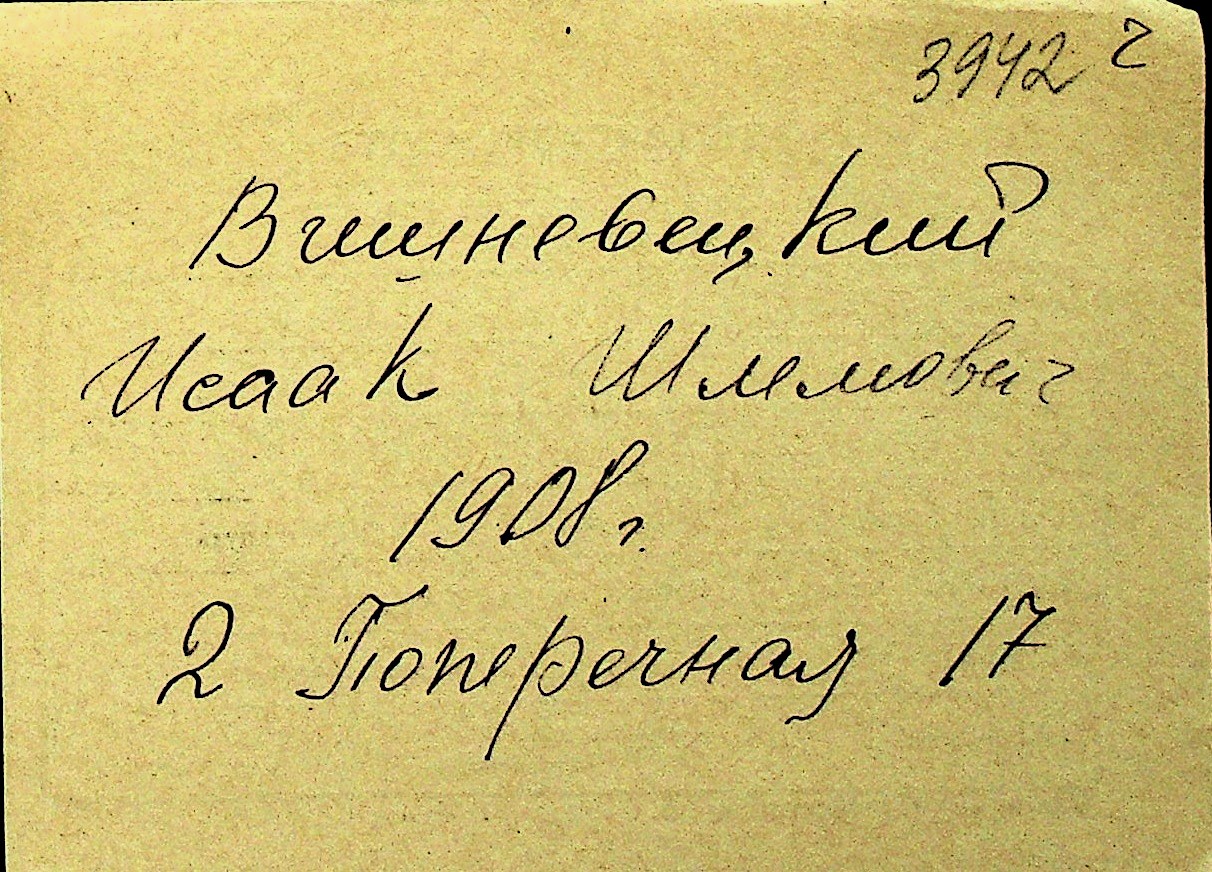 3942 г
Вишневецкий
Исаак Шлемович
1908 г.
2 Поперечная 17